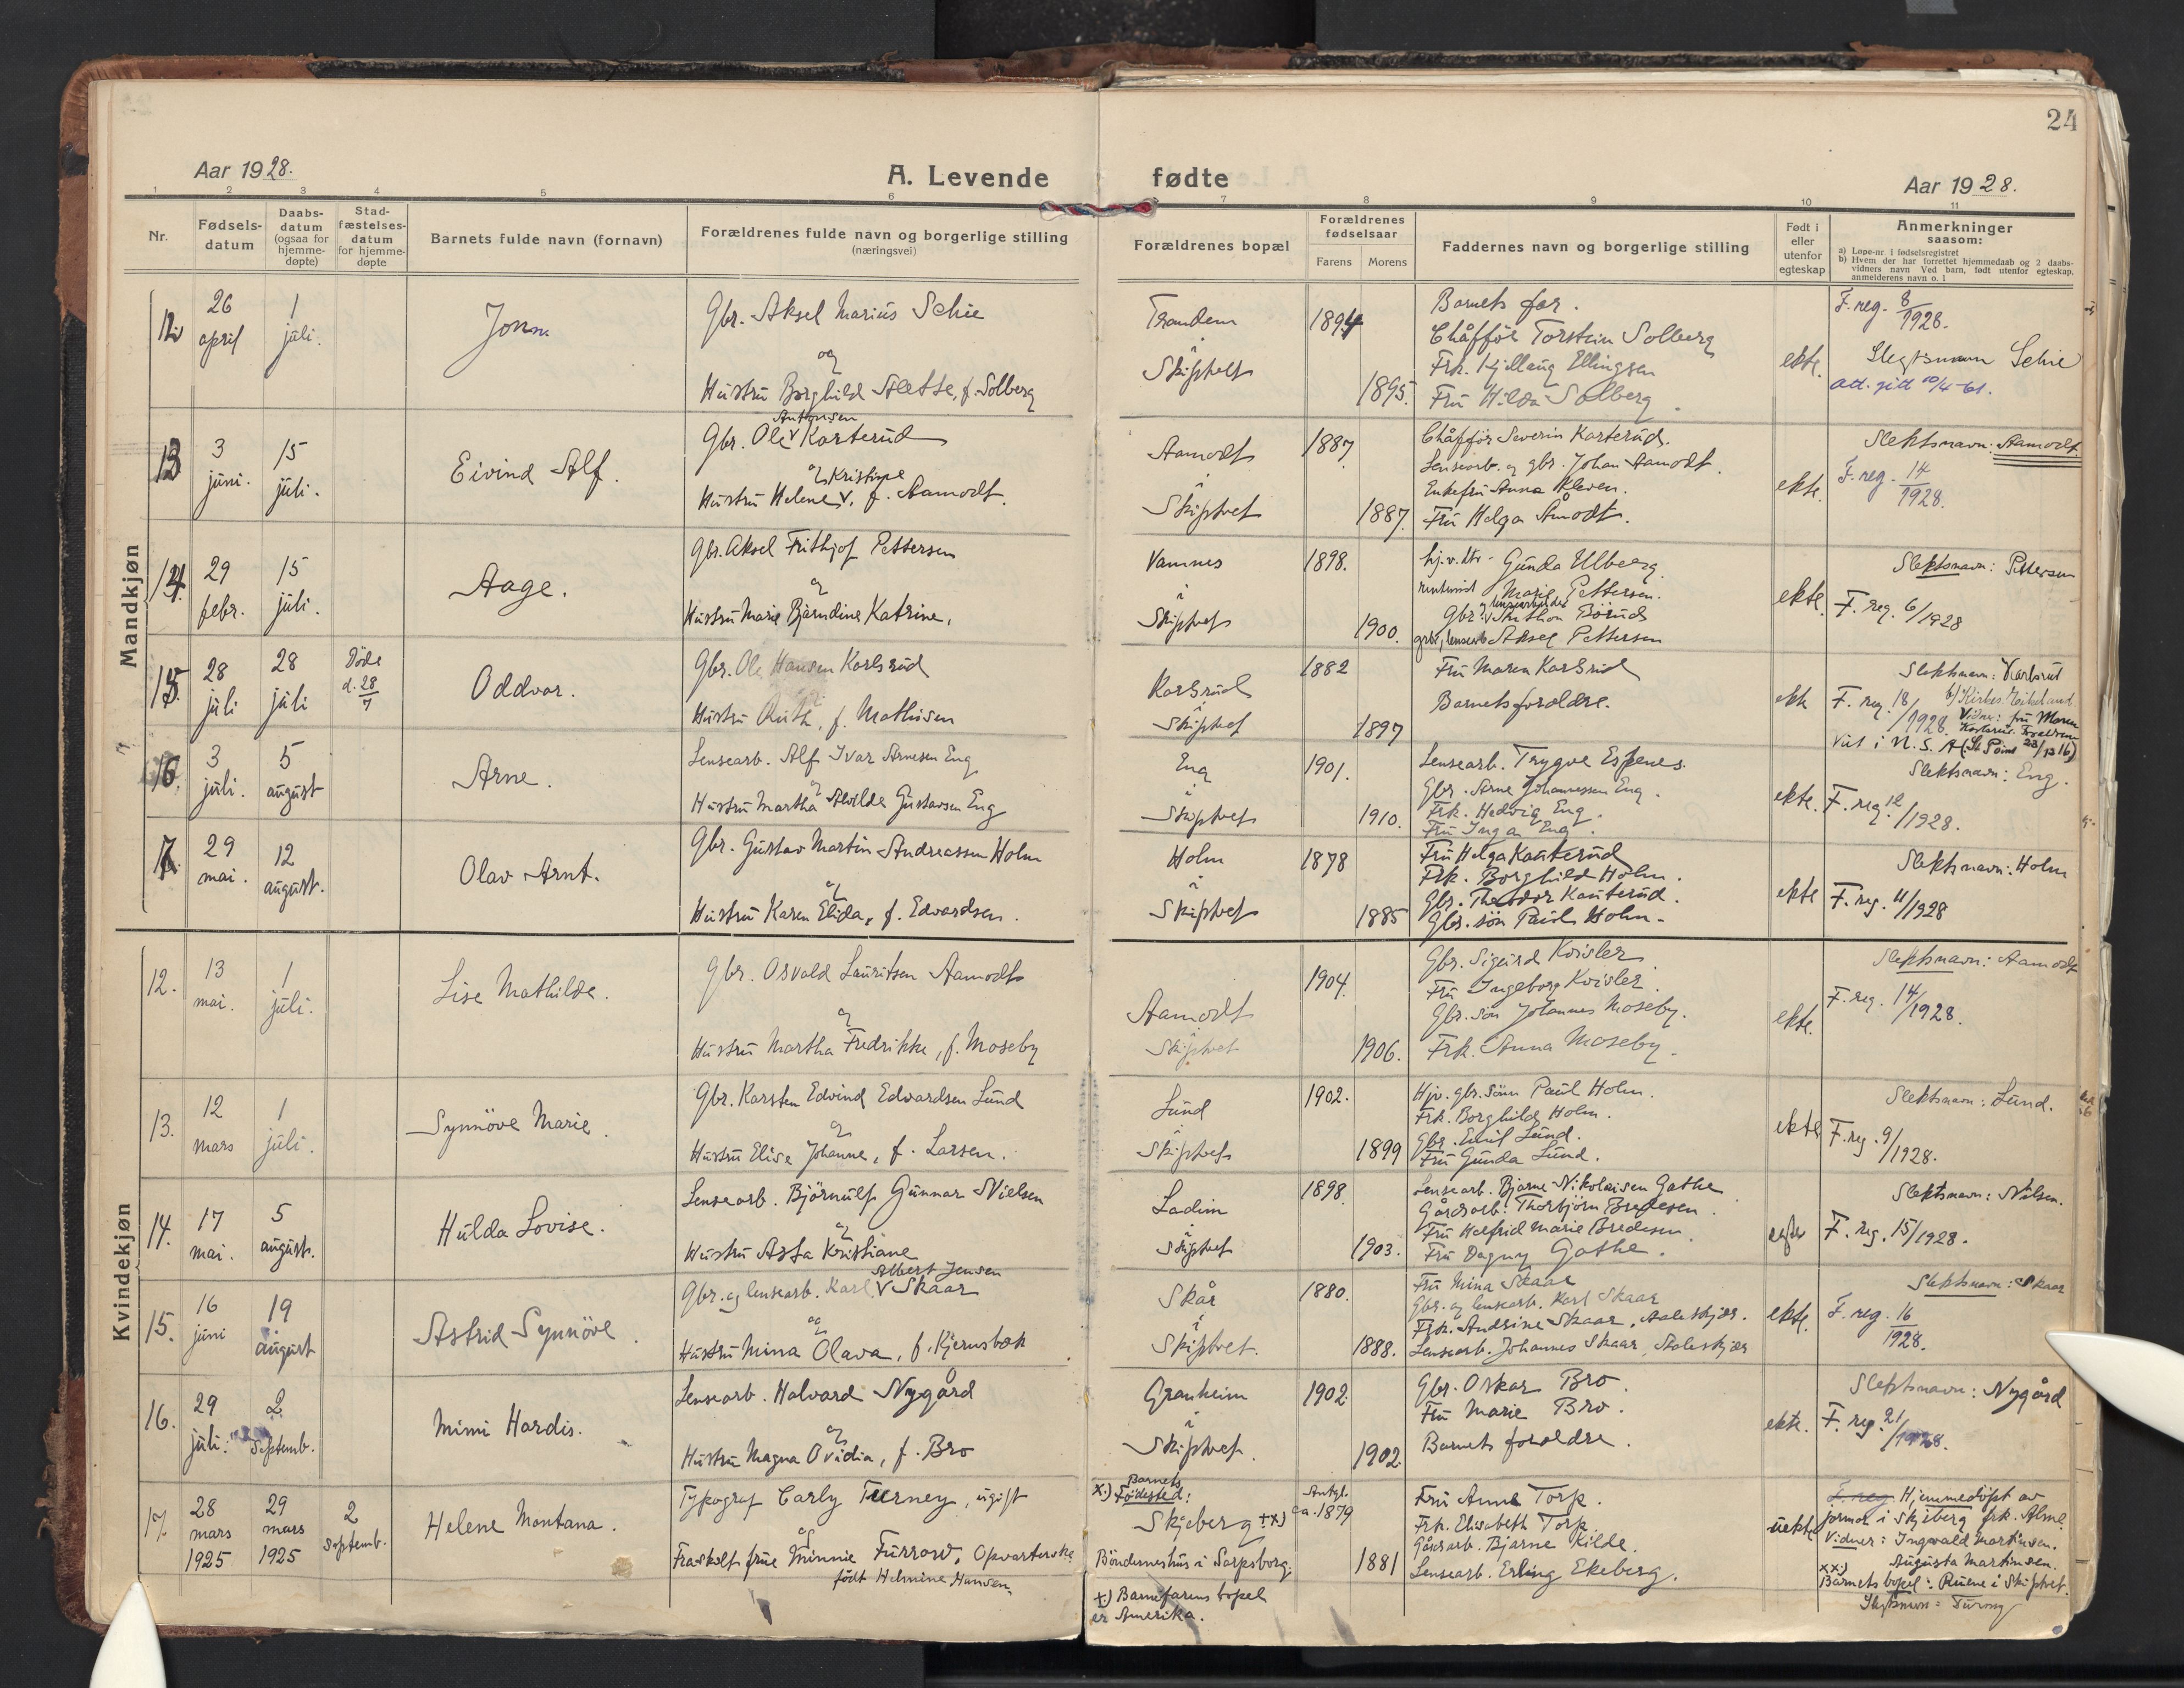 24
Aar 1928.
A. Levende fødte
Aar 1928.
1 2 3 4 5 6 7 8 9 10 11
Nr.
Fødsels-
datum
Daabs-
datum
(ogsaa for
hjemme-
døpte)
Stad-
fæstelses-
datum
for hjemme-
døpte
Barnets fulde navn (fornavn)
Forældrenes fulde navn og borgerlige stilling
(næringsvei)
Forældrenes bopæl
Forældrenes
fødselsaar
Farens Morens
Faddernes navn og borgerlige stilling
Født i
eller
utenfor
egteskap
Anmerkninger
saasom:
a) Løpe-nr. i fødselsregistret
b) Hvem der har forrettet hjemmedaab og 2 daabs-
vidners navn Ved barn, født utenfor egteskap,
anmelderens navn o. l
Mandkjøn
12
26
april
1
juli.
Jonn.
Gbr. Aksel Marius Schie
og
Hustru Borghild Alette, f. Solberg
Trandem
i
Skiptvet
1894
1895.
Barnets far.
Chåfför Torstein Solberg
Frk. Kjellaug Ellingsen
Fru Hilda Solberg.
ekte.
F. reg. 8/1928.
Slegtsnavn Schie
Att. gitt 10/4-61.
13
3
juni.
15
juli.
Eivind Alf.
Antonsen
Gbr. Ole v Karterud
og Kristine
Hustru Helene v. f. Aamodt.
Aamodt
i
Skiptvet
1887
1887.
Chåfför Severin Karterud.
Lensearb. og gbr. Johan Aamodt.
Enkefru Anna Kleven.
Fru Helga Åmodt.
ekte.
Slektsnavn: Aamodt.
F. reg. 14/1928.
14.
29
febr.
15
juli.
Aage.
Gbr. Aksel Frithjof Pettersen
og
Hustru Marie Bjarndine Katrine,
Vamnes
i
Skiptvet
1898.
1900.
hj.v.dtr. Gunda Ulberg.
Marie Pettersen.
og lensearbeider
Gbr. v Börud
Aksel Pettersen
ekte.
Slektsnavn: Pettersen
F. reg. 6/1928
15.
28
juli
28
juli
Döde
d. 28/7
Oddvar.
Gbr. Ole Hansen Karlsrud
Hustru Ruth, f. Mathisen
Karlsrud
i
Skiptvet
1882
1897
Fru Maren Karlsrud
Barnets foreldre.
ekte
Slektsnavn: Karlsrud
F. reg. 18/1928.
Vidner: fru Maren
16.
3
juli.
5
august
Arne.
Lensearb. Alf Ivar Arnesen Eng
og
Hustru Martha Alvilde Gustavsen Eng
Eng
i
Skiptvet
1901.
1910.
Lensearb. Trygve Espenes.
Gbr. Arne Johannessen Eng.
Frk. Hedvig Eng.
Fru Inga Eng.
ekte.
Slektsnavn: Eng.
F. reg. 12/1928.
17.
29
mai.
12
august.
Olav Arnt.
Gbr. Gustav Martin Andreassen Holm
og
Hustru Karen Elida, f. Edvardsen.
Holm
i
Skiptvet
1878
1885
Fru Helga Kauterud
Frk. Borghild Holm.
Gbr. Theodor Kauterud.
Gbr. sön Paul Holm.
ekte
Slektsnavn: Holm
F. reg. 11/1928
Kvindekjøn
12.
13
mai.
1
juli.
Lise Mathilde.
Gbr. Osvald Lauritsen Aamodt
og
Hustru Martha Fredrikke, f. Moseby
Aamodt
i
Skiptvet
1904.
1906.
Gbr. Sigurd Kvisler
Fru Ingeborg Kvisler.
Gbr. sön Johannes Moseby.
Frk. Anna Moseby.
ekte.
Slektsnavn: Aamodt
F. reg. 14/1928.
13.
12
mars
1
juli.
Synnöve Marie.
Gbr. Karsten Edvind Edvardsen Lund
og
Hustru Elise Johanne, f. Larsen.
Lund
i
Skiptvet
1902.
1899
Hjv. gbr. sönn Paul Holm.
Frk. Borghild Holm.
Gbr. Emil Lund.
Fru Gunda Lund.
ekte
Slektsnavn: Lund.
F. reg. 9/1928.
14.
17
mai.
5
august.
Hulda Lovise.
Lensearb. Björnulf Gunnar Nielsen
og
Hustru Asta Kristiane
Ladim
i
Skiptvet
1898.
1903.
Lensearb. Bjarne Nikolaisen Gathe
Gårdsarb. Thorbjörn Bredesen.
Fru Halfrid Marie Bredesen.
Fru Dagny Gathe.
Slektsnavn: Nilsen.
F. reg. 15/1928.
15.
16
juni
19
august
Astrid Synnöve.
Albert Jensen
Gbr. og lensearb. Karl v Skaar
og
Hustru Mina Olava, f. Kjernsbæk
Skår
i
Skiptvet.
1880.
1888.
Fru Mina Skaar
Gbr. og lensearb. Karl Skaar
Frk. Andrine Skaar, Aaleskjær.
Lensearb. Johannes Skaar, Aaleskjær
ekte.
Slektsnavn: Skaar
F. reg. 16/1928.
16.
29
juli.
2
septemb.
Mimi Hardis.
Lensearb. Halvard Nygård
og
Hustru Magna Ovidia, f. Bro
Granheim
i
Skiptvet.
1902.
1902.
Gbr. Oskar Bro.
Fru Marie Bro.
Barnets foreldre.
ekte.
Slektsnavn: Nygård
F. reg. 21/1928.
17
28
mars
1925
29
mars
1925
2
septemb.
Helene Montana.
Typograf Carly Turney, ugift
og
Fraskilt frue Minnie Furrow, Opvarterske
födt Helmine Hansen
x.) Barnets
Födested:
Skjeberg +x)
Böndernes hus i Sarpsborg.
+) Barnefarens bopel
er Amerika.
Antgl.
ca. 1879
1881
Fru Anna Torp.
Frk. Elisabeth Torp.
Gårdsarb. Bjarne Kilde.
Lensearb. Erling Ekeberg.
uekte
F. reg. Hjemmedöpt av
jormor i Skjeberg frk. Alme.
Vidner: Ingvald Martinsen.
Augusta Martinsen.
xx)
Barnets bopel: Ruene i Skiptvet.
Slegtsnavn: Turney